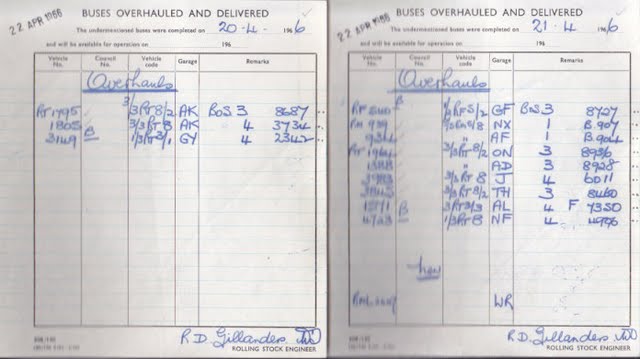 22 APR 1966
BUSES OVERHAULED AND DELIVERED
The undermentioned buses were completed on 20-4- 1966
and will be available for operation on 196
Vehicle No. Council No. Vehicle code Garage Remarks
Overhauls
RT 1795 3/3RT8/2 AK BoS 3 8687
1805 3/3RT8 AK 4 3734
3149 B 1/3RT3/1 GY 4 2342
R.D. Gillanders
ROLLING STOCK ENGINEER
22 APR 1966
BUSES OVERHAULED AND DELIVERED
The undermentioned buses were completed on 21-4- 1966
and will be available for operation on 196
Vehicle No. Council No. Vehicle code Garage Remarks
Overhauls
RF B GF BoS 3 8727
NX 1 B.907
AF 1 B.904
RT 3/3RT8/2 ON 3 8936
" AD 3 8928
3/3RT8 J 4 6011
3/3RT8/2 TH 3 8460
B 3RT3/3 AL 4 F 7350
4723 1/3RT8 NF 4
New
WR
R.D. Gillanders
ROLLING STOCK ENGINEER